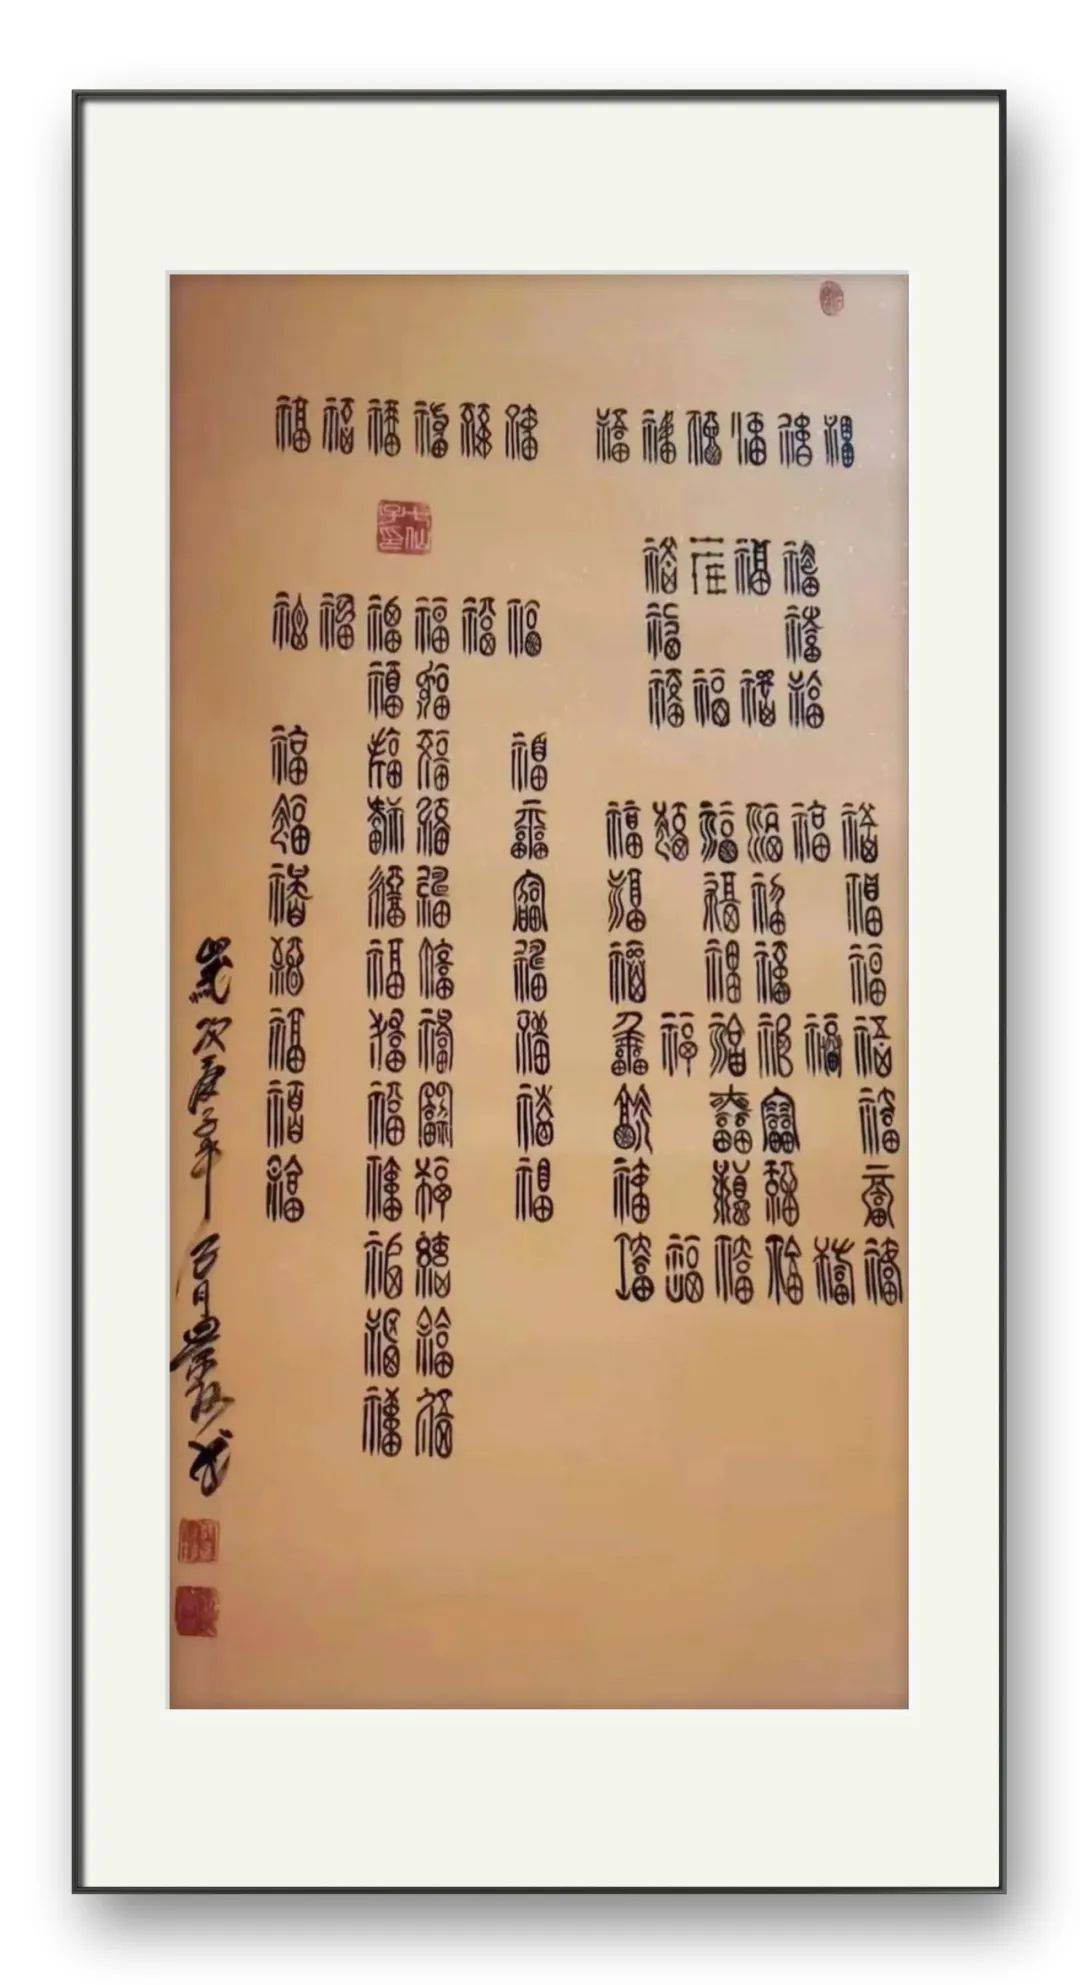 福福福福福福福福
福福福福福福福
福福福福福福福福福福
福福福福福福福福福福
福福福福福福福
福福福福福福福福
福福福福福福福福福
福福
福福福福福福福福福福福福福
福福福福福福福福福福福福福
福福
福福福福福福福福福
七仙子印
歲次庚子年 月 書